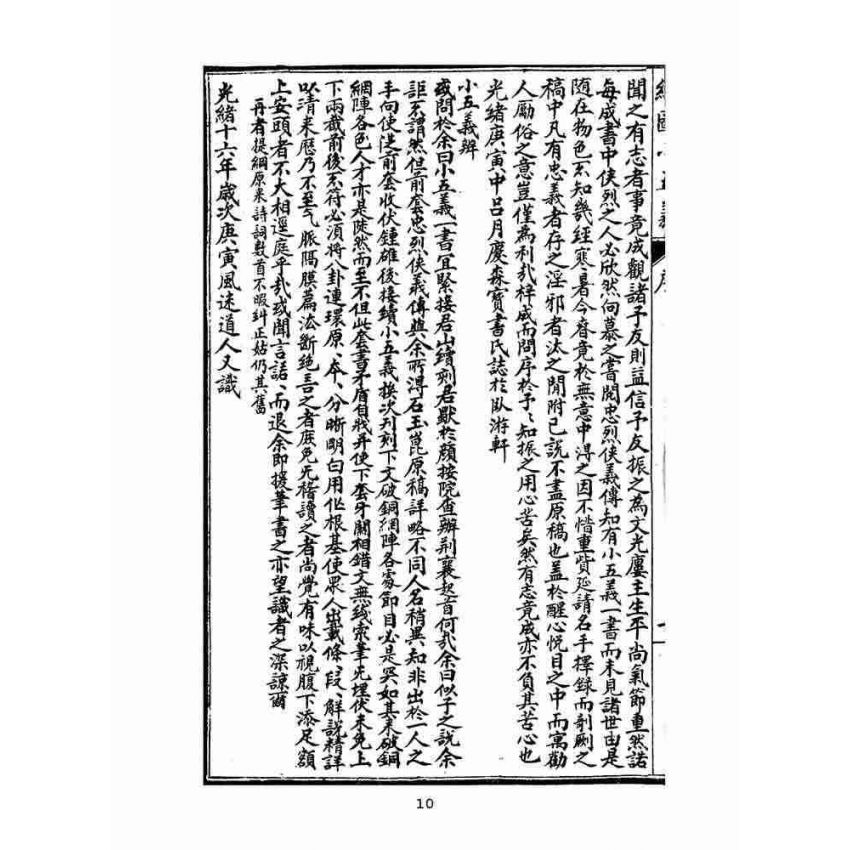 繡像小五義 序
聞之有志者事竟成觀諸予友則益信予友振之為文光廔主生平尚氣節重然諾
每成書中俠烈之人必欣然向慕之嘗閱忠烈俠義傳知有小五義一書而未見諸世由是
随在物色不知幾經寒暑今春竟於無意中得之因不惜重貲延請名手擇錄而剞劂之
稿中凡有忠義者存之淫邪者汰之間附己說不盡原稿也蓋於醒心悅目之中而寓勸
人勵俗之意豈僅為利哉梓成而問序於予知振之用心苦矣然有志竟成亦不負其苦心也
光緒庚寅中呂月慶森寶書氏誌於臥游軒
小五義辨
或問於余曰小五義一書宜緊接君山續刻君獸於顏按院查辦荊襄起首何哉余曰似子之說余
詎不謂然但前套忠烈俠義傳與余所得石玉崑原稿詳略不同人名稍異知非出於一人之
手向使從前套收伏鍾雄後接續小五義挨次刊刻下文破銅網陣各處節目必是突如其来破銅
網陣各色人才亦是陡然而至不但此套書矛盾自戕并使下套牙關相錯文無线索筆先埋伏未免上
下兩截前後不符必須將八卦連環原本分晰明白用作根基使眾人出載條段解說精詳
以清来歷乃不至氣脈隔膜篇法斷絕言之者庶免无稽讀之者尚覺有味以視腹下添足額
上安頭者不大相逕庭乎哉或聞言諾而退余即援筆書之亦望識者之深諒爾
再者提綱原来詩詞數首不暇糾正姑仍其舊
光緒十六年歲次庚寅風迷道人又識
10